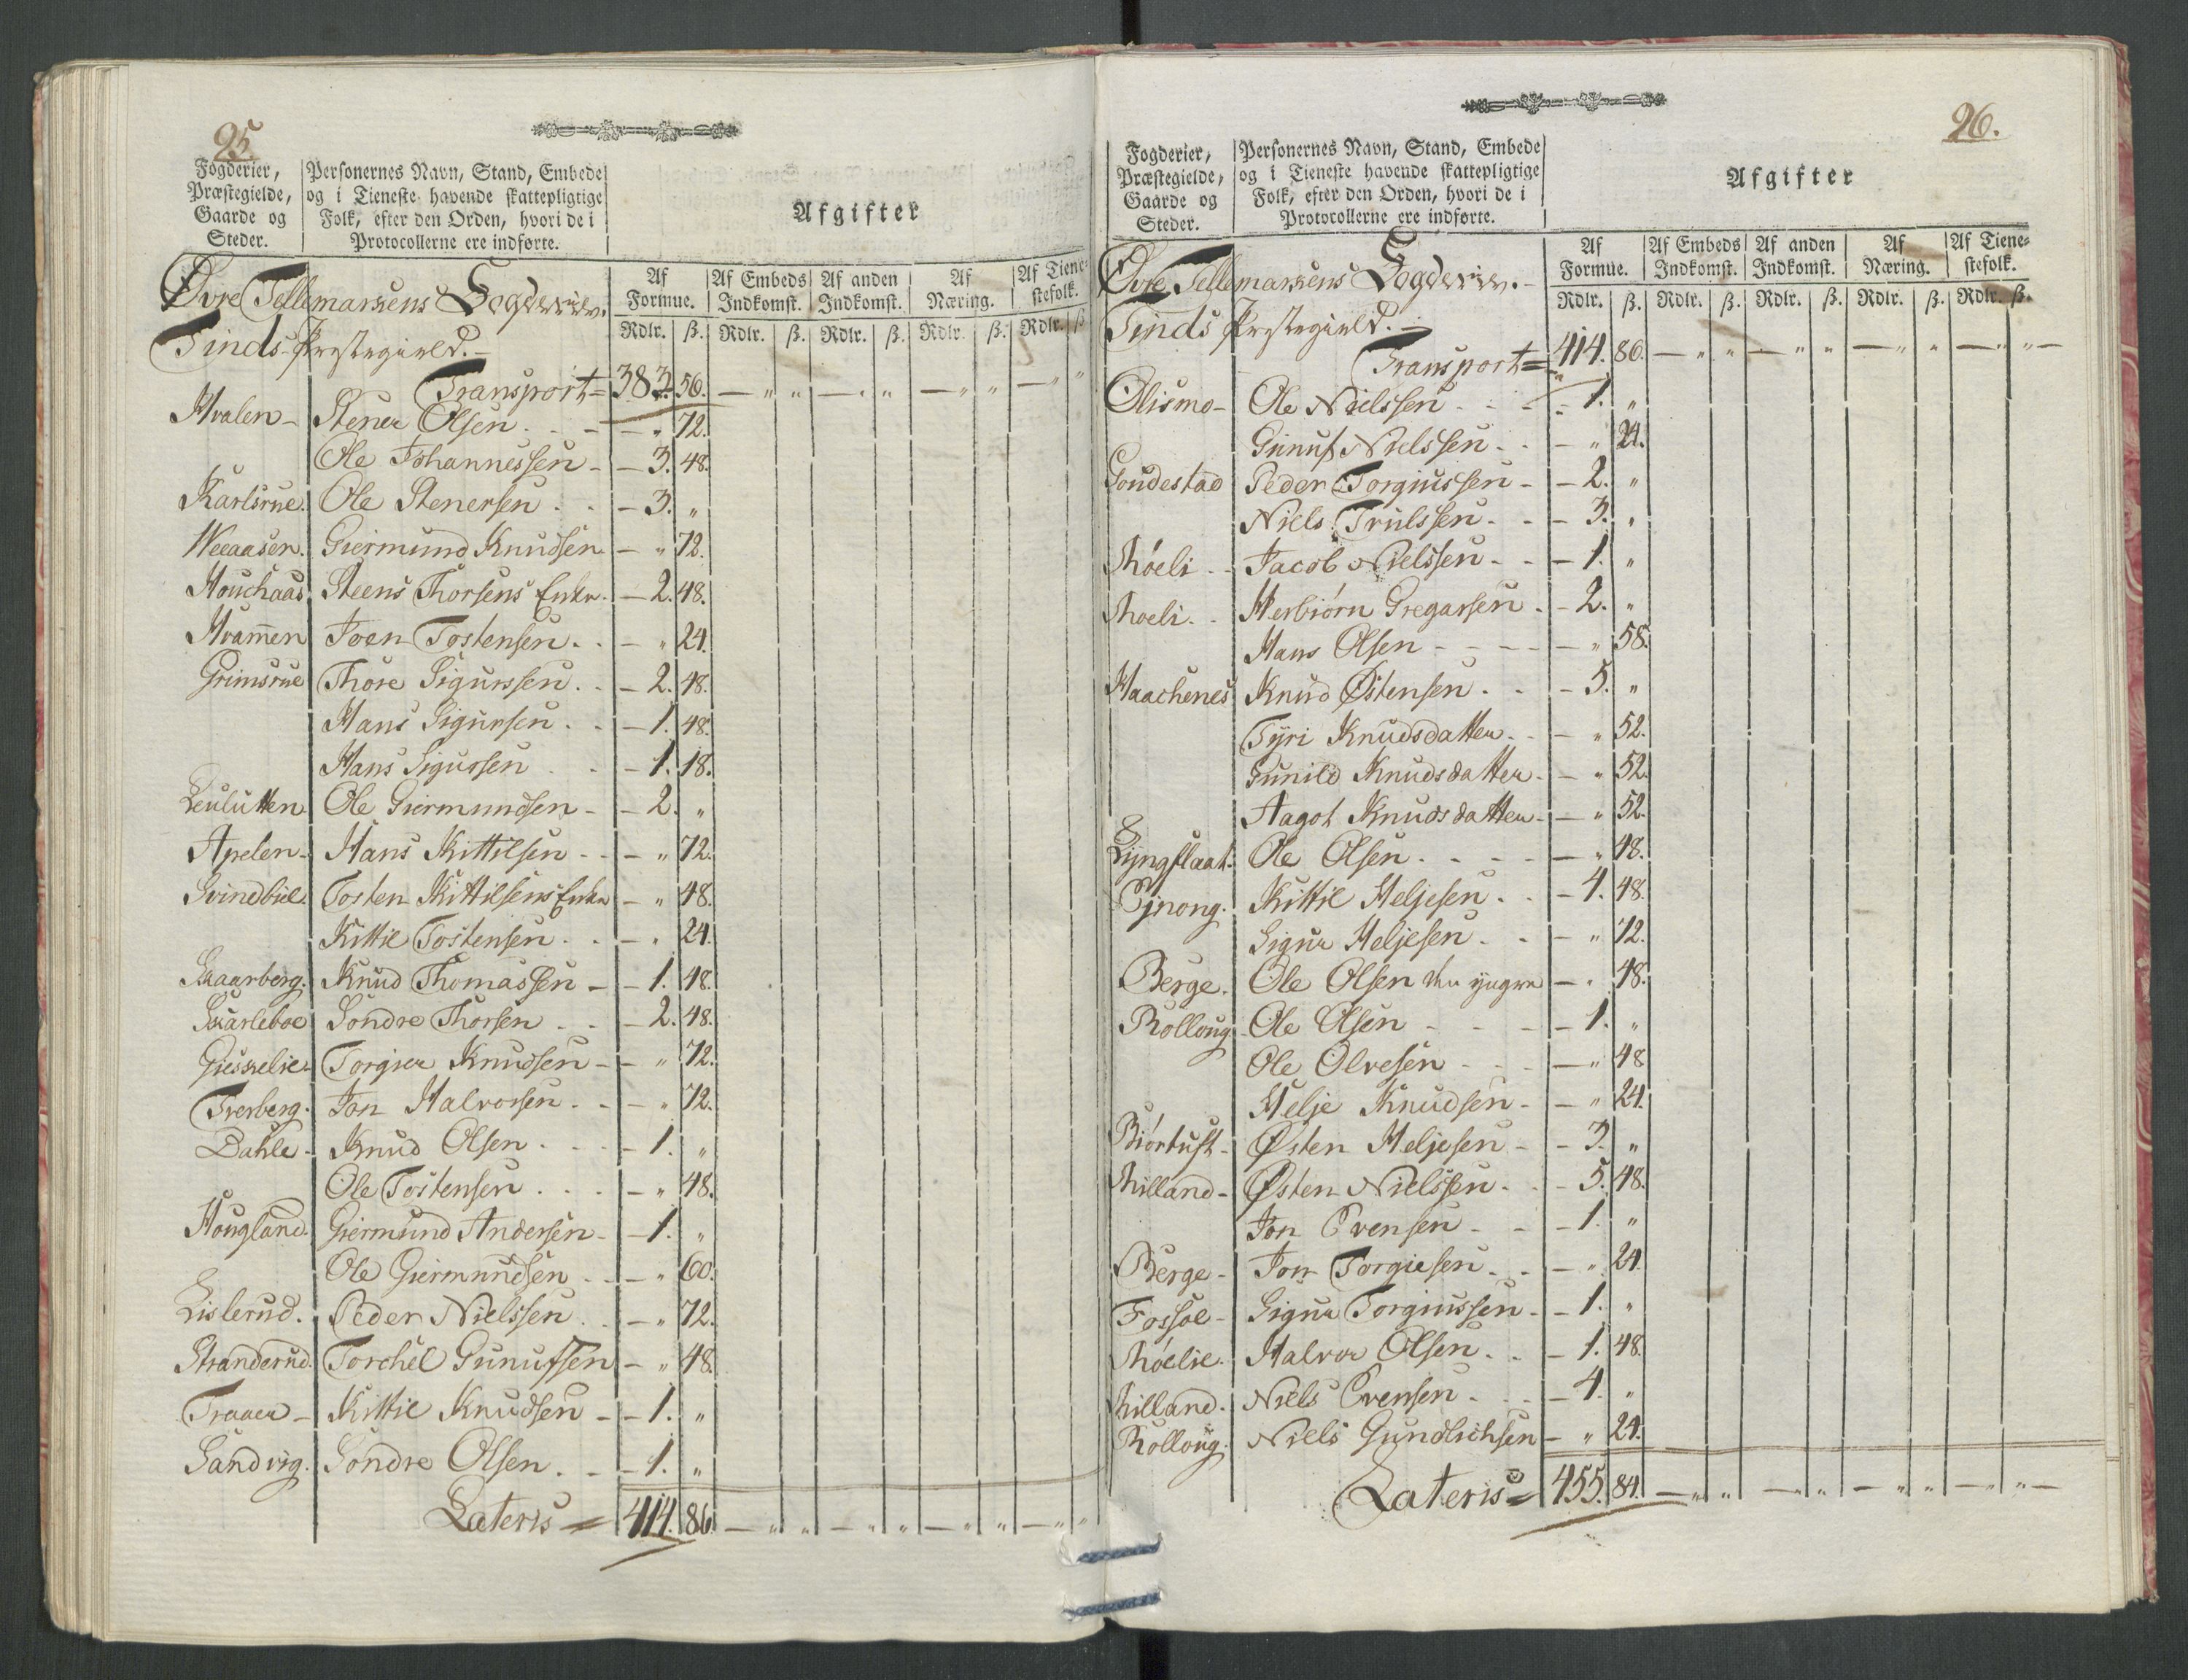 25.
Fogderier, Præstegielde, Gaarde og Steder.
Personernes Navn, Stand, Embede og i Tieneste havende skattepligtige Folk, efter den Orden, hvori de i Protocollerne ere indførte.
Afgifter
Af Formue. Af Embeds Indkomst. Af anden Indkomst. Af Næring. Af Tienestefolk.
Rdlr. ß. Rdlr. ß. Rdlr. ß. Rdlr. ß. Rdlr. ß
Øvre Tellemarkens Fogderie.
Tinds Præstegield.
Transport = 383. 56. — " " — " " — " " — " "
Hvalen - Stener Olsen - " 72.
Ole Johannessen - 3. 48.
Karlsrue. Ole Stenersen - 3. "
Weeaasen. Giermund Knudsen - " 72.
Houchaas Steens Thorsens Enke - 2. 48.
Hvam̅en Joen Tostensen - " 24.
Grimsrue Thore Sigurssen - 2. 48.
Hans Sigursen - 1. 48.
Hans Sigursen - 1. 18.
Leulutten Ole Giermundsen - 2. "
Apelen - Hans Kittilsen - " 72.
Svindbüel. Tosten Kittilsens Enke - " 48.
Kittil Tostensen - " 24.
Skaarberg. Knud Thomassen - 1. 48.
Skarleboe Sondre Thorsen - 2. 48.
Giesselie. Torgier Knudsen - " 72.
Tverberg. Jon Halvorsen - " 72.
Dahle - Knud Olsen - 1. "
Ole Tostensen - " 48.
Hougland. Giermund Andersen - 1. "
Ole Giermundsen - " 60.
Lislerud. Peder Nielssen - " 72.
Stranderud. Torchel Gunufsen - " 48
Traaen - Kittil Knudsen - 1. "
Sandvig. Sondre Olsen - 1. "
Lateris = 414. 86. — " " — " " — " " — " "
26.
Fogderier, Præstegielde, Gaarde og Steder.
Personernes Navn, Stand, Embede og i Tieneste havende skattepligtige Folk, efter den Orden, hvori de i Protocollerne ere indførte.
Afgifter
Af Formue. Af Embeds Indkomst. Af anden Indkomst. Af Næring. Af Tienestefolk.
Rdlr. ß. Rdlr. ß. Rdlr. ß. Rdlr. ß. Rdlr. ß.
Øvre Tellemarkens Fogderie.
Tinds Præstegield.
Transport = 414. 86. — " " — " " — " " — " " —
Olismo - Ole Nielssen - 1. "
Gunuf Nielssen - " 24.
Goudestad Peder Torgiussen - 2. "
Niels Trulssen - 3. "
Møeli - Jacob Nielssen - 1. "
Moeli - Herbiørn Gregarsen - 2. "
Hans Olsen - " 58.
Haachenes Knud Østensen - 5. "
Tyri Knudsdatter - " 52.
Gunild Knudsdatter - " 52.
Aagot Knudsdatter - " 52.
Lyngflaat. Ole Olsen - " 48.
Kittil Heljesen - 4. 48.
Sigur Heljesen - " 72.
Berge. Ole Olsen den yngre - " 48.
Rolloug - Ole Olsen - 1. "
Ole Olvesen - " 48
Helje Knudsen - " 24.
Biørtuft - Østen Heljesen - 3. "
Milland - Østen Nielssen - 5. 48.
Jon Evensen - 1. "
Berge - Jon Torgiesen - " 24.
Fossøe - Sigur Torgiussen - 1. "
Møelie. Halvor Olsen - 1. 48.
Milland. Niels Evensen - 4. "
Rolloug. Niels Gundlichsen - " 24.
Lateris = 455. 84. — " " — " " — " " — " " —